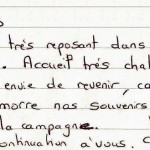 très reposant dans
. Accueil très chal
envie de revenir, ca
morre nos souvenirs
la campagne.
continuation à vous. C